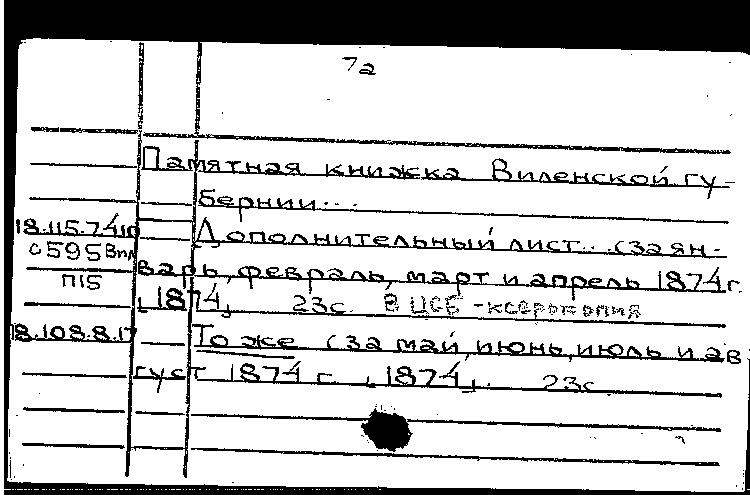 7а
Памятная книжка Виленской гу-
бернии...
18.115.7.410 Дополнительный лист... (за ян-
с 595 Впл
варь, февраль, март и апрель 1874 г.
П15
, 1874, 23с. В ЦСБ - ксерокопия
18.108.8.17 То же (за май, июнь, июль и ав
густ 1874 г. , 1874, . 23с